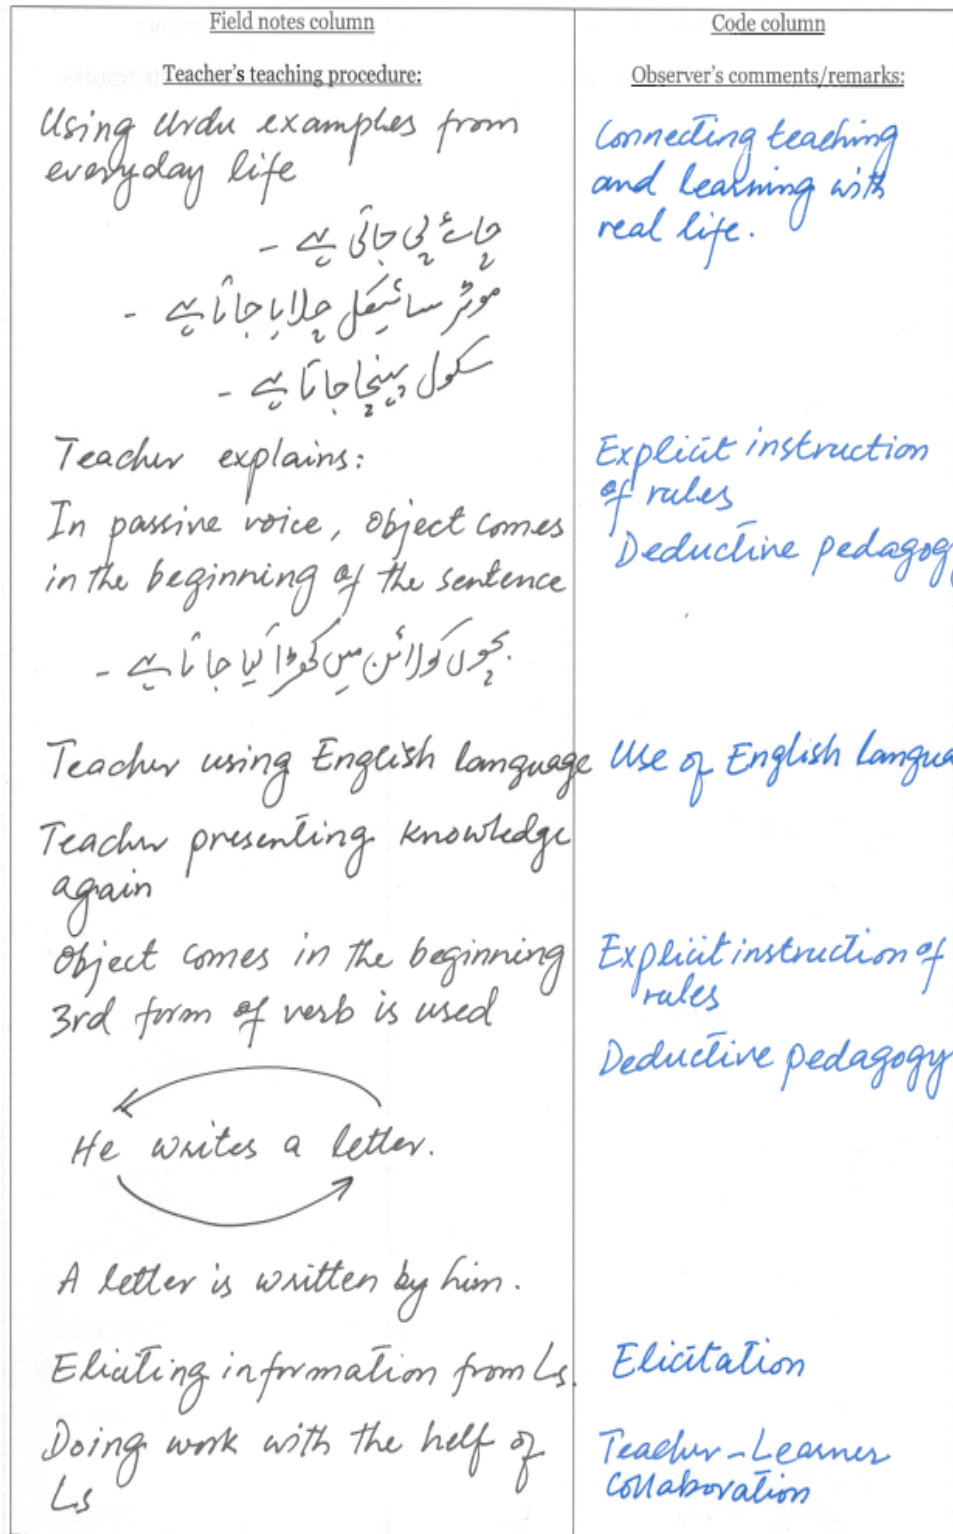 Field notes column
Teacher's teaching procedure:
Using Urdu examples from
everyday life
چائے پی جاتی ہے -
موٹر سائیکل چلایا جاتا ہے -
سکول پہنچا جاتا ہے -
Teacher explains:
In passive voice, object comes
in the beginning of the sentence
بچوں کو لائن میں کھڑا کیا جاتا ہے -
Teacher using English language
Teacher presenting knowledge
again
Object comes in the beginning
3rd form of verb is used
He writes a letter.
A letter is written by him.
Eliciting information from Ls.
Doing work with the helf of
Ls
Code column
Observer's comments/remarks:
Connecting teaching
and learning with
real life.
Explicit instruction
of rules
Deductive pedagog
Use of English langua
Explicit instruction of
rules
Deductive pedagogy
Elicitation
Teacher-Learner
Collaboration